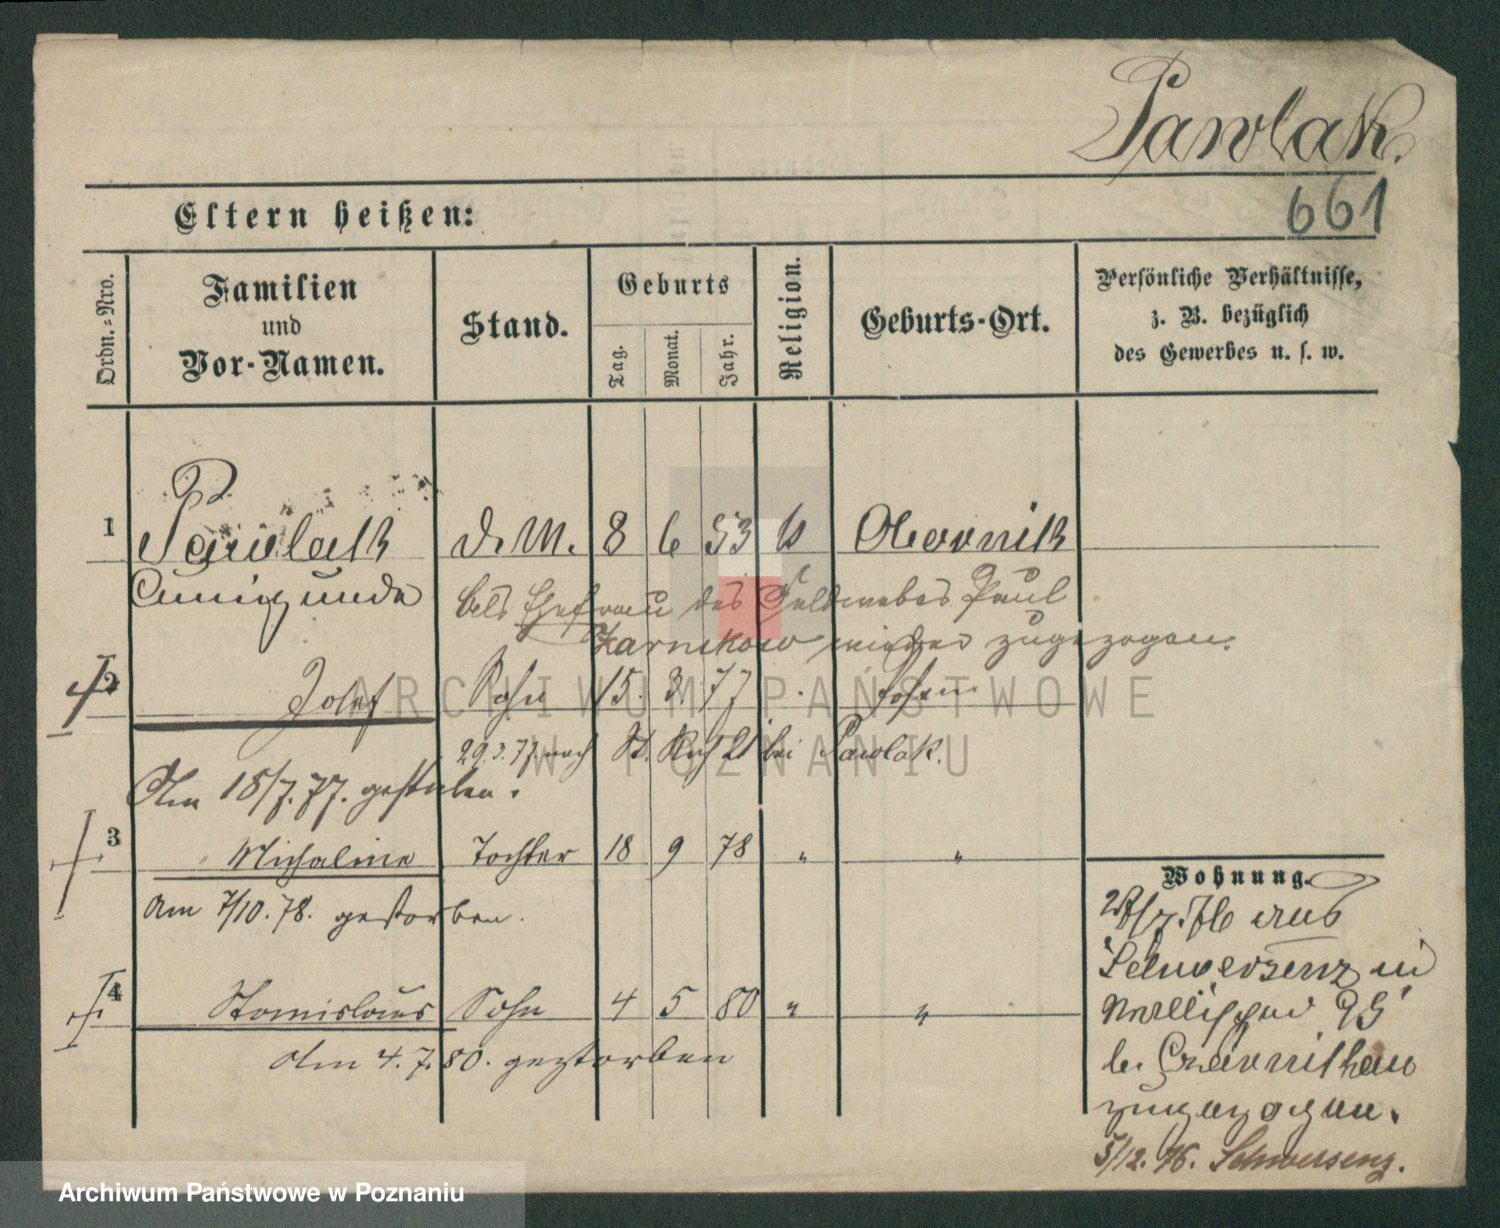 Pawlak.
661
Eltern heißen:
Ordn.=Nro.
Familien
und
Vor-Namen.
Stand.
Geburts
Tag.
Monat.
Jahr.
Religion.
Geburts-Ort.
Persönliche Verhältnisse,
z. B. bezüglich
des Gewerbes u. s. w.
1 Pawlak d. M. 8 6 53 k Obornik
Cunigunda
als Ehefrau des Feldwebes Paul
Zarnikow wieder zugezogen.
2 Josef Sohn 15. 3. 77 Posen
29.3.77. nach St. Roch 21 bei Pawlak.
Am 18/7. 77. gestorben.
3 Michaline Tochter 18 9 78 " "
Am 7/10. 78. gestorben.
4 Stanislaus Sohn 4 5 80 " "
Am 4. 7. 80. gestorben
Wohnung.
aus
Schwersenz in
Wallischei 95
b. zugezogen.
5/12. 76. Schwersenz.
ARCHIWUM PAŃSTWOWE
W POZNANIU
Archiwum Państwowe w Poznaniu